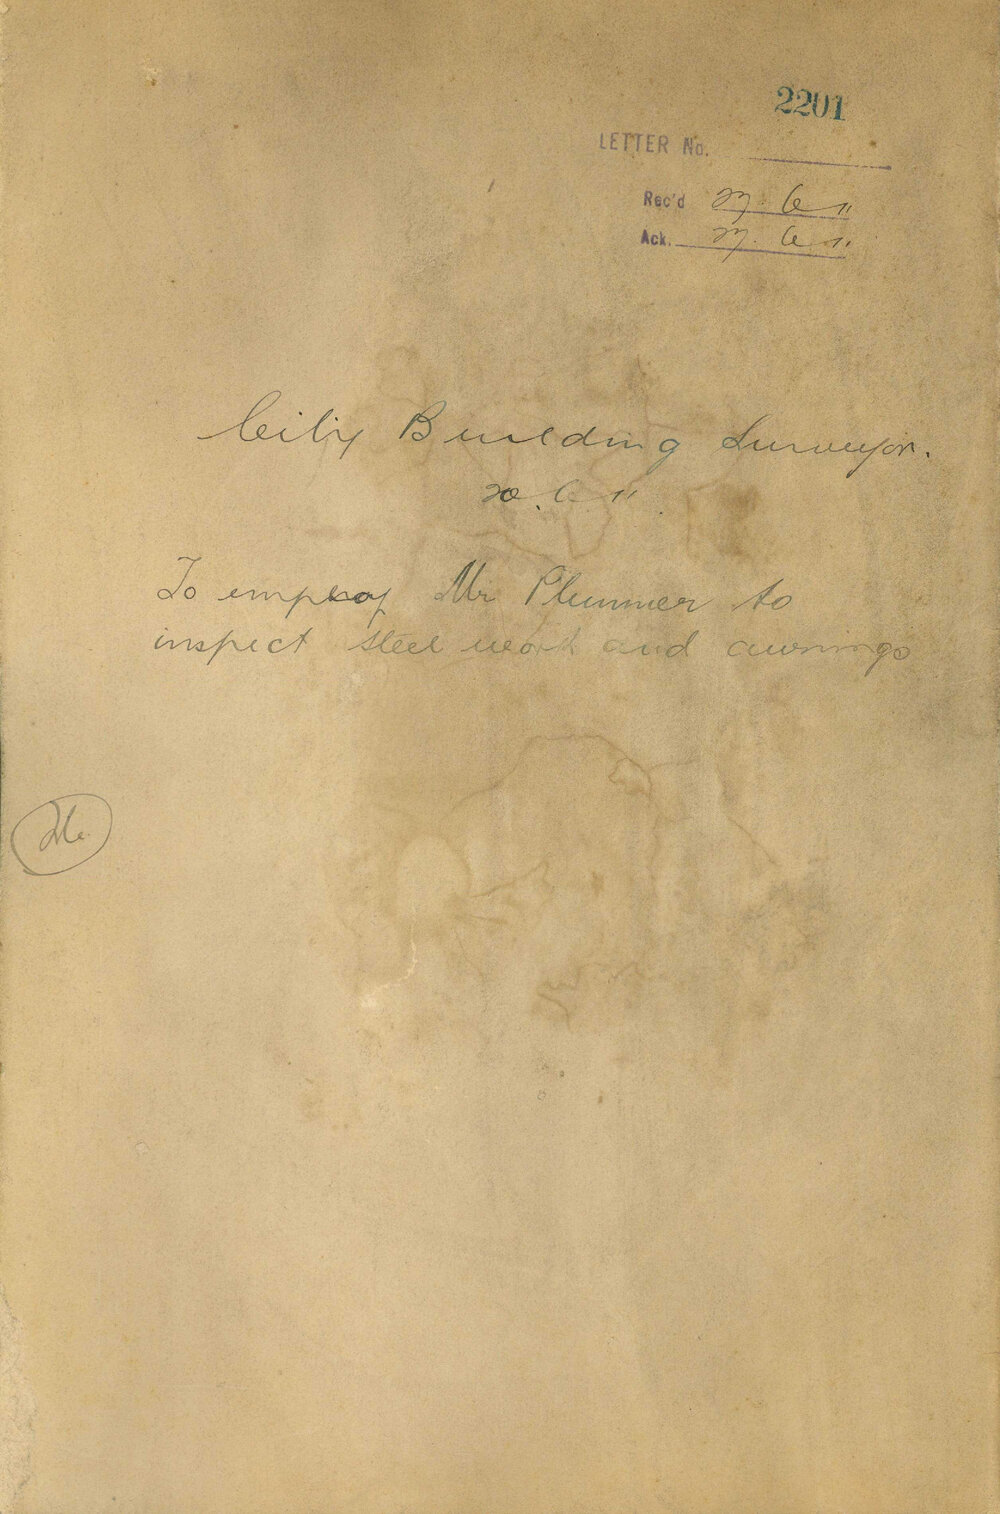 2201
LETTER No.
Rec'd 27. 6 11
Ack. 27. 6 11.
City Building Surveyor.
20. 6 11.
To employ Mr Plummer to
inspect steel work and awnings